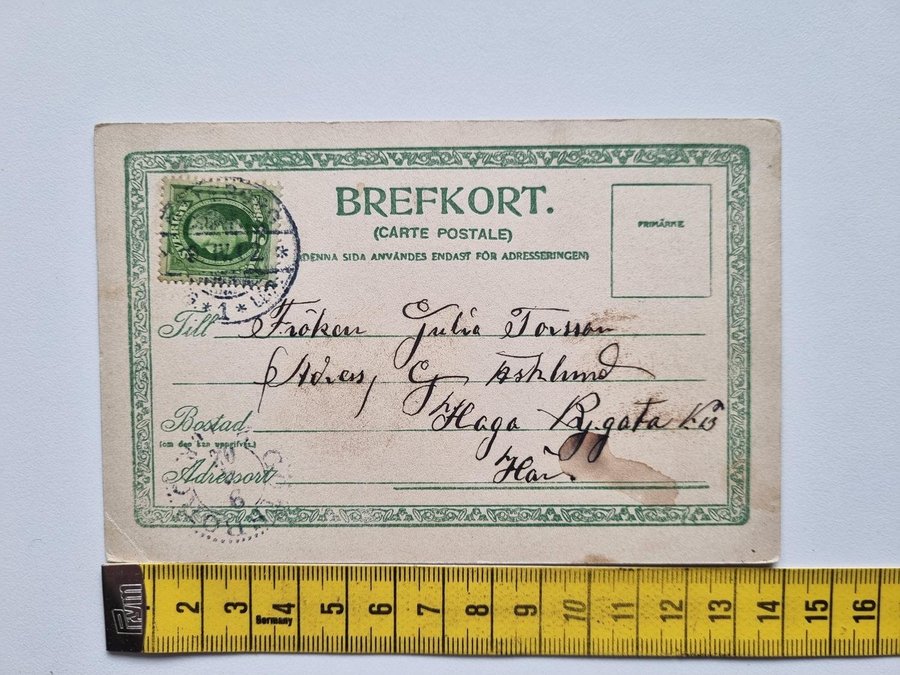 BREFKORT.
(CARTE POSTALE)
(DENNA SIDA ANVÄNDES ENDAST FÖR ADRESSERINGEN)
FRIMÄRKE
SVERIGE
Till Fröken Julia Torsson
Adress, G Asklund
Bostad Haga Nygata
(om den kan uppgifvas.)
Adressort Här
Germany
2 3 4 5 6 7 8 9 10 11 12 13 14 15 16